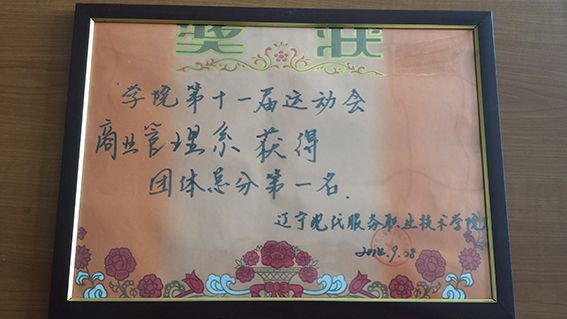 奖状
学院第十一届运动会
商业管理系获得
团体总分第一名.
辽宁现代服务职业技术学院
9.28